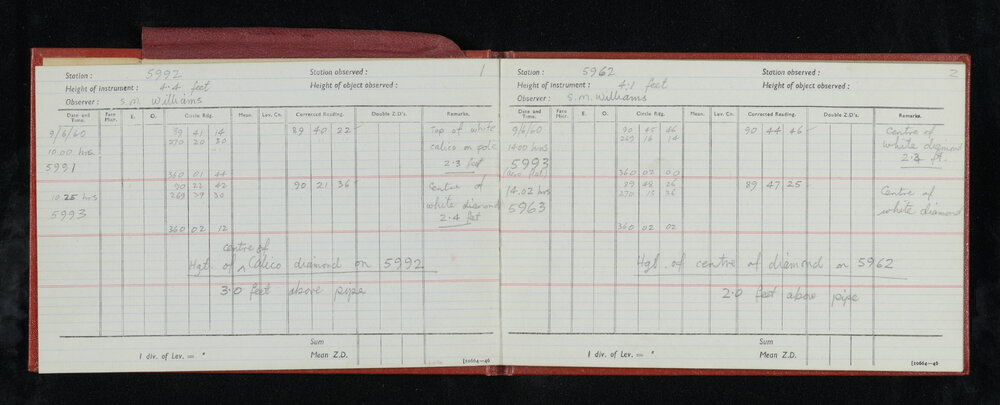 Station : 5992 Station observed : 1
Height of instrument : 4.4 feet Height of object observed :
Observer : S.M. Williams
Date and Time. Face Micr. E. O. Circle Rdg. Mean. Lev. Cn. Corrected Reading. Double Z.D's. Remarks.
9/6/60 89 41 14 89 40 22 Top of white
10.00 hrs 270 20 30 calico on pole
5991 2.3 feet
360 01 44
90 22 42 90 21 36 Centre of
10.25 hrs 269 39 30 white diamond
5993 2.4 feet
360 02 12
centre of
Hgt. of ^ Calico diamond on 5992
3.0 feet above pipe
Sum
1 div. of Lev. = " Mean Z.D.
[10664—46
Station : 5962 Station observed : 2
Height of instrument : 4.1 feet Height of object observed :
Observer : S.M. Williams
Date and Time. Face Micr. E. O. Circle Rdg. Mean. Lev. Cn. Corrected Reading. Double Z.D's. Remarks.
9/6/60 90 45 46 90 44 46 Centre of
1400 hrs 269 16 14 white diamond
5993 2.4 ft.
360 02 00
89 48 26 89 47 25 Centre of
14.02 hrs 270 13 36 white diamond
5963
360 02 02
Hgt. of centre of diamond on 5962
2.0 feet above pipe
Sum
1 div. of Lev. = " Mean Z.D.
[10664—46